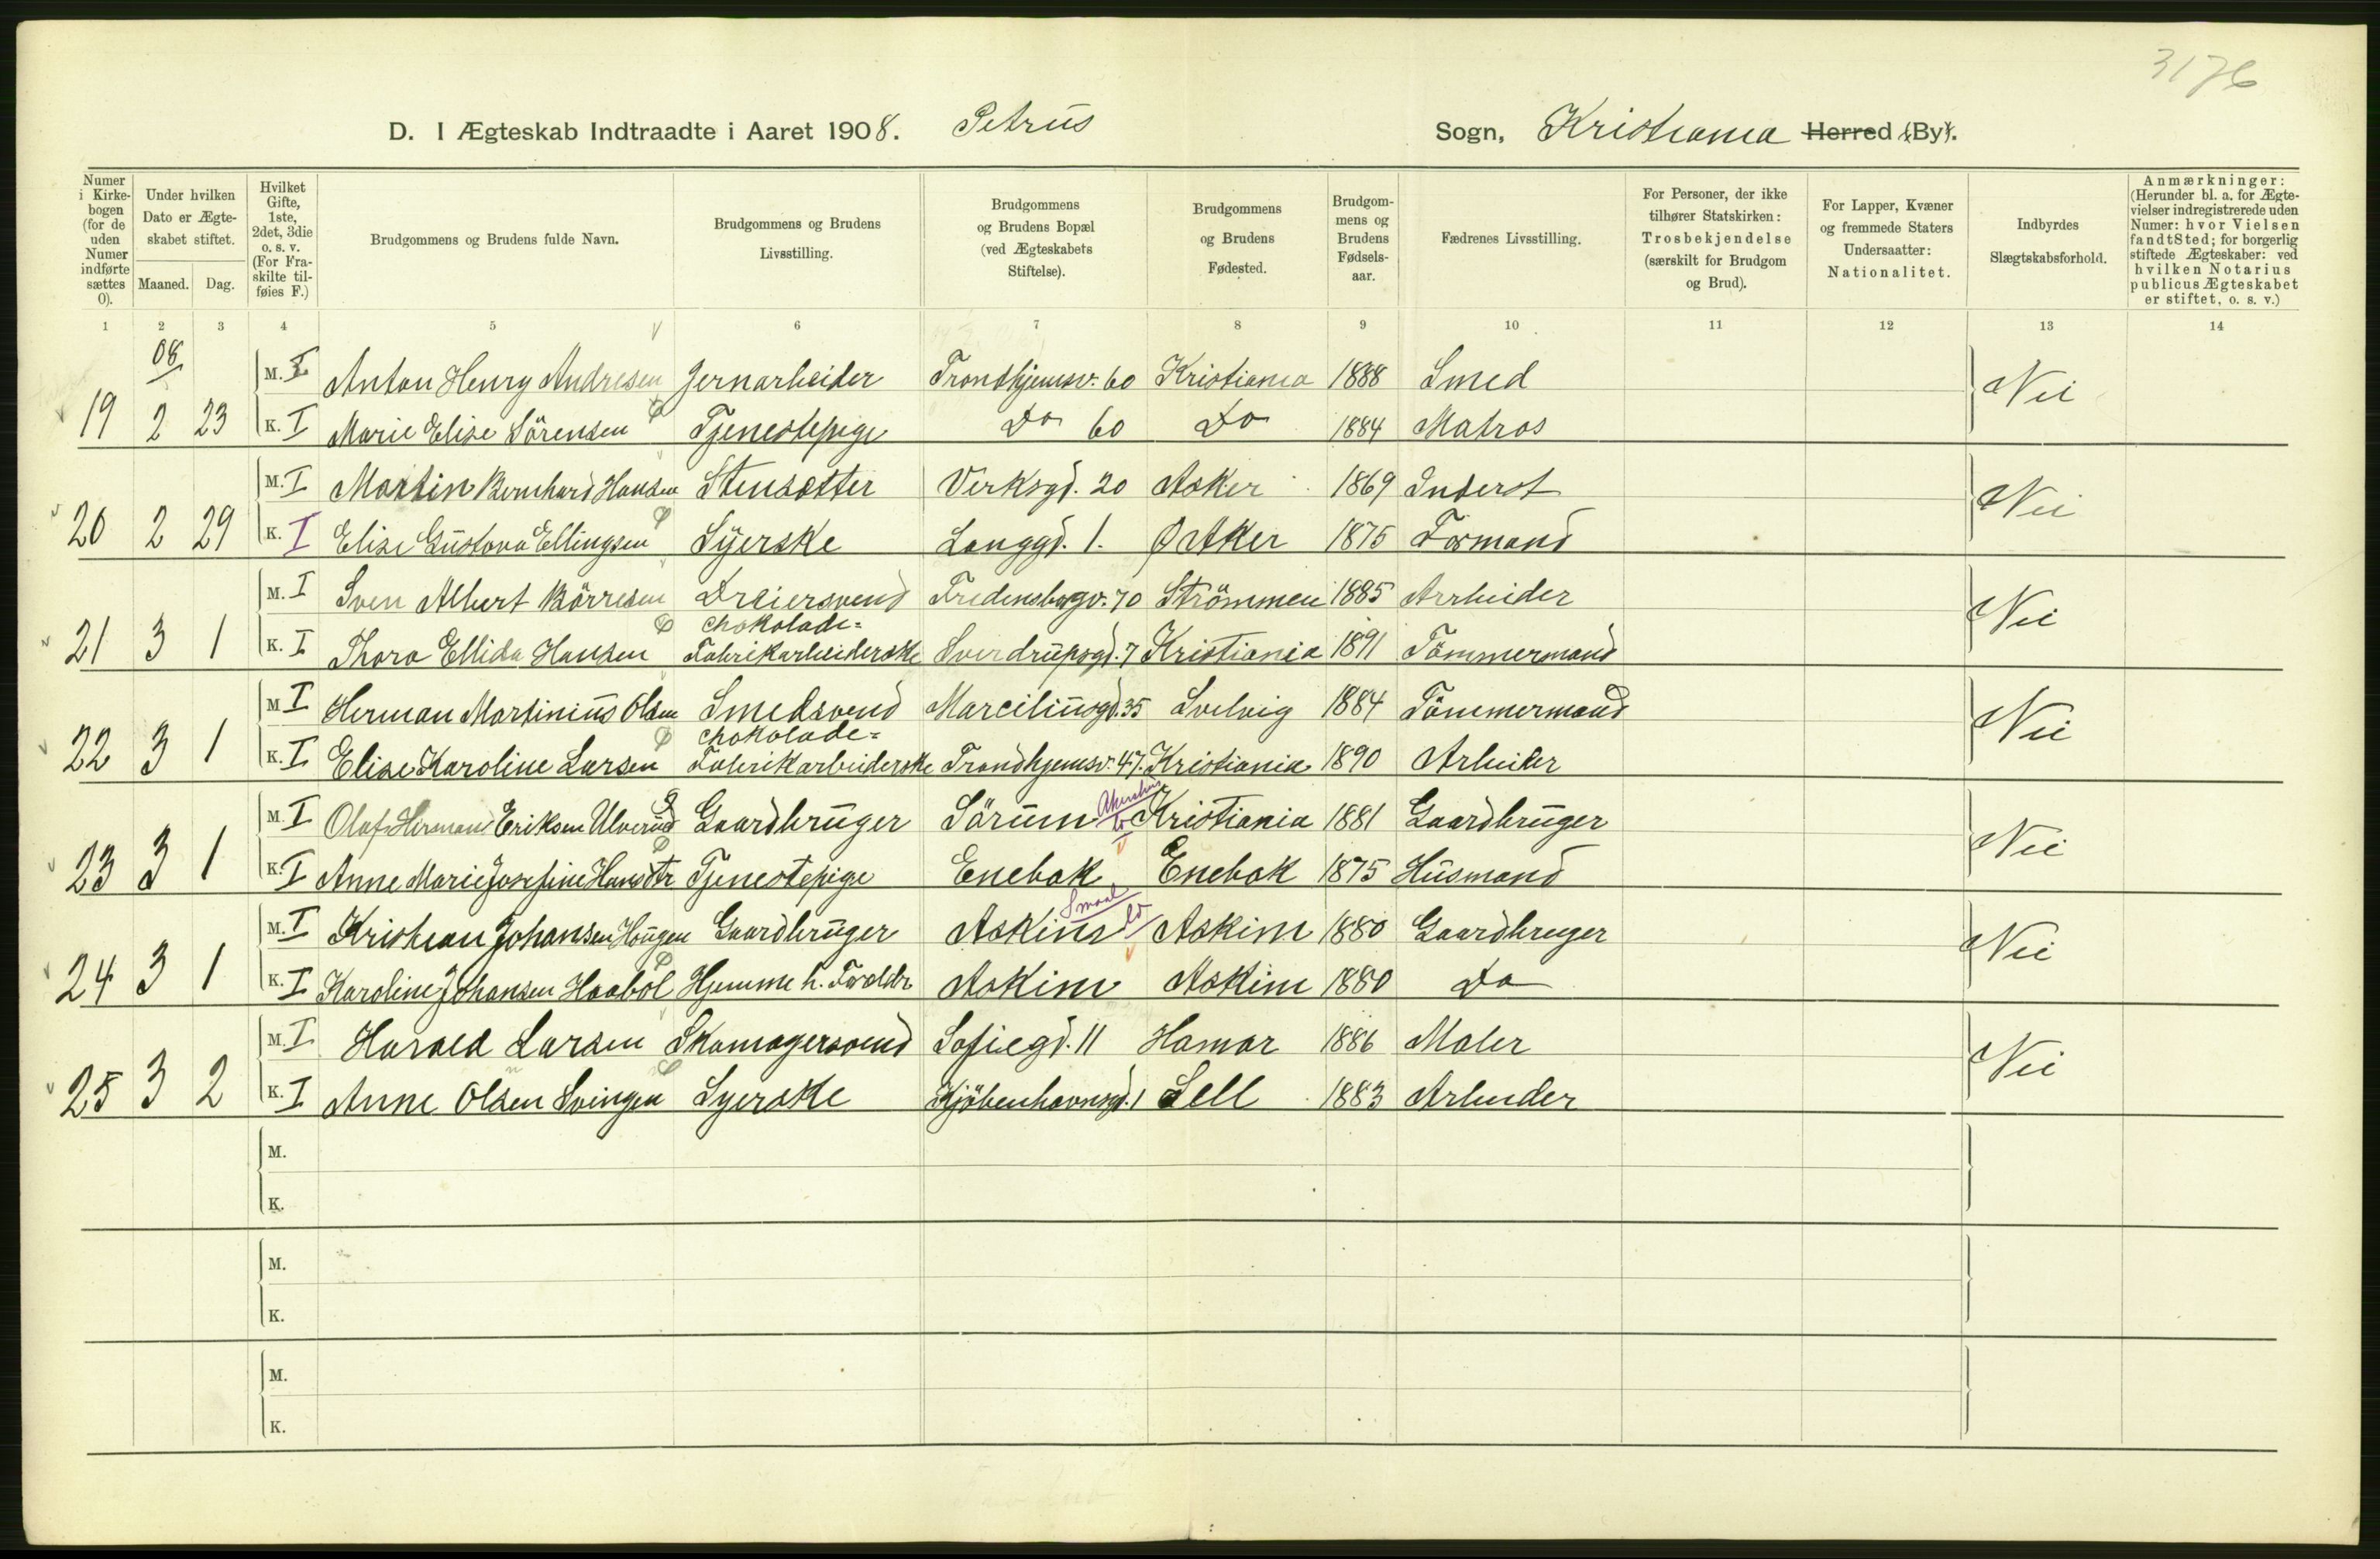 3176
D. I Ægteskab Indtraadte i Aaret 1908. Petrus Sogn, Kristiania Herred (By).
Numer i Kirkebogen (for de uden Numer indførte sættes 0).
Under hvilken Dato er Ægteskabet stiftet.
Maaned. Dag.
Hvilket Gifte, 1ste, 2det, 3die o. s. v. (For Fraskilte tilføies F.)
Brudgommens og Brudens fulde Navn.
Brudgommens og Brudens Livsstilling.
Brudgommens og Brudens Bopæl (ved Ægteskabets Stiftelse).
Brudgommens og Brudens Fødested.
Brudgommens og Brudens Fødselsaar.
Fædrenes Livsstilling.
For Personer, der ikke tilhører Statskirken: Trosbekjendelse (særskilt for Brudgom og Brud).
For Lapper, Kvæner og fremmede Staters Undersaatter: Nationalitet.
Indbyrdes Slægtskabsforhold.
Anmærkninger: (Herunder bl. a. for Ægtevielser indregistrerede uden Numer: hvor Vielsen fandt Sted; for borgerlig stiftede Ægteskaber: ved hvilken Notarius publicus Ægteskabet er stiftet, o. s. v.)
1 2 3 4 5 6 7 8 9 10 11 12 13 14
08
M. I Anton Henry Andresen Jernarbeider Trondhjemsv. 60 Kristiania 1888 Smed
19 2 23 K. I Marie Elise Sörensen Tjenestepige Do 60 Do 1884 Matros Nei
M. I Martin Bernhard Hansen Stensætter Verksgd. 20 Asker 1869 Inderst
20 2 29 K. I Elise Gustava Ellingsen Syerske Langgd. 1. Ø Aker 1875 Formand Nei
M. I Sven Albert Börresen Dreiersvend Fredensborgv. 70 Strömmen 1885 Arbeider
Chokolade=
21 3 1 K. I Thora Ellida Hansen Fabrikarbeiderske Sverdrupsgd. 7 Kristiania 1891 Tömmermand Nei
M. I Herman Martinius Olsen Smedsvend Marceliusgd. 35 Svelvig 1884 Tömmermand
Chokolade=
22 3 1 K. I Elise Karoline Larsen Fabrikarbeiderske Trondhjemsv. 47. Kristiania 1890 Arbeider Nei
M. I Olaf Herman Eriksen Ulverud Gaardbruger Sörum Akershus Kristiania 1881 Gaardbruger
23 3 1 K. I Anne Marie Josefine Hansdtr Tjenestepige Enebak Enebak 1875 Husmand Nei
Smaal
M. I Kristian Johansen Hougen Gaardbruger Askim Askim 1880 Gaardbruger
24 3 1 K. I Karoline Johansen Haaböl Hjemme h. Forældr Askim Askim 1880 Do Nei
M. I Harald Larsen Skomagersvend Sofiegd. 11 Hamar 1886 Maler
25 3 2 K. I Anne Olsen Svingen Syerske Kjöbenhavnsgd. 1 Sell 1883 Arbeider Nei
M.
K.
M.
K.
M.
K.